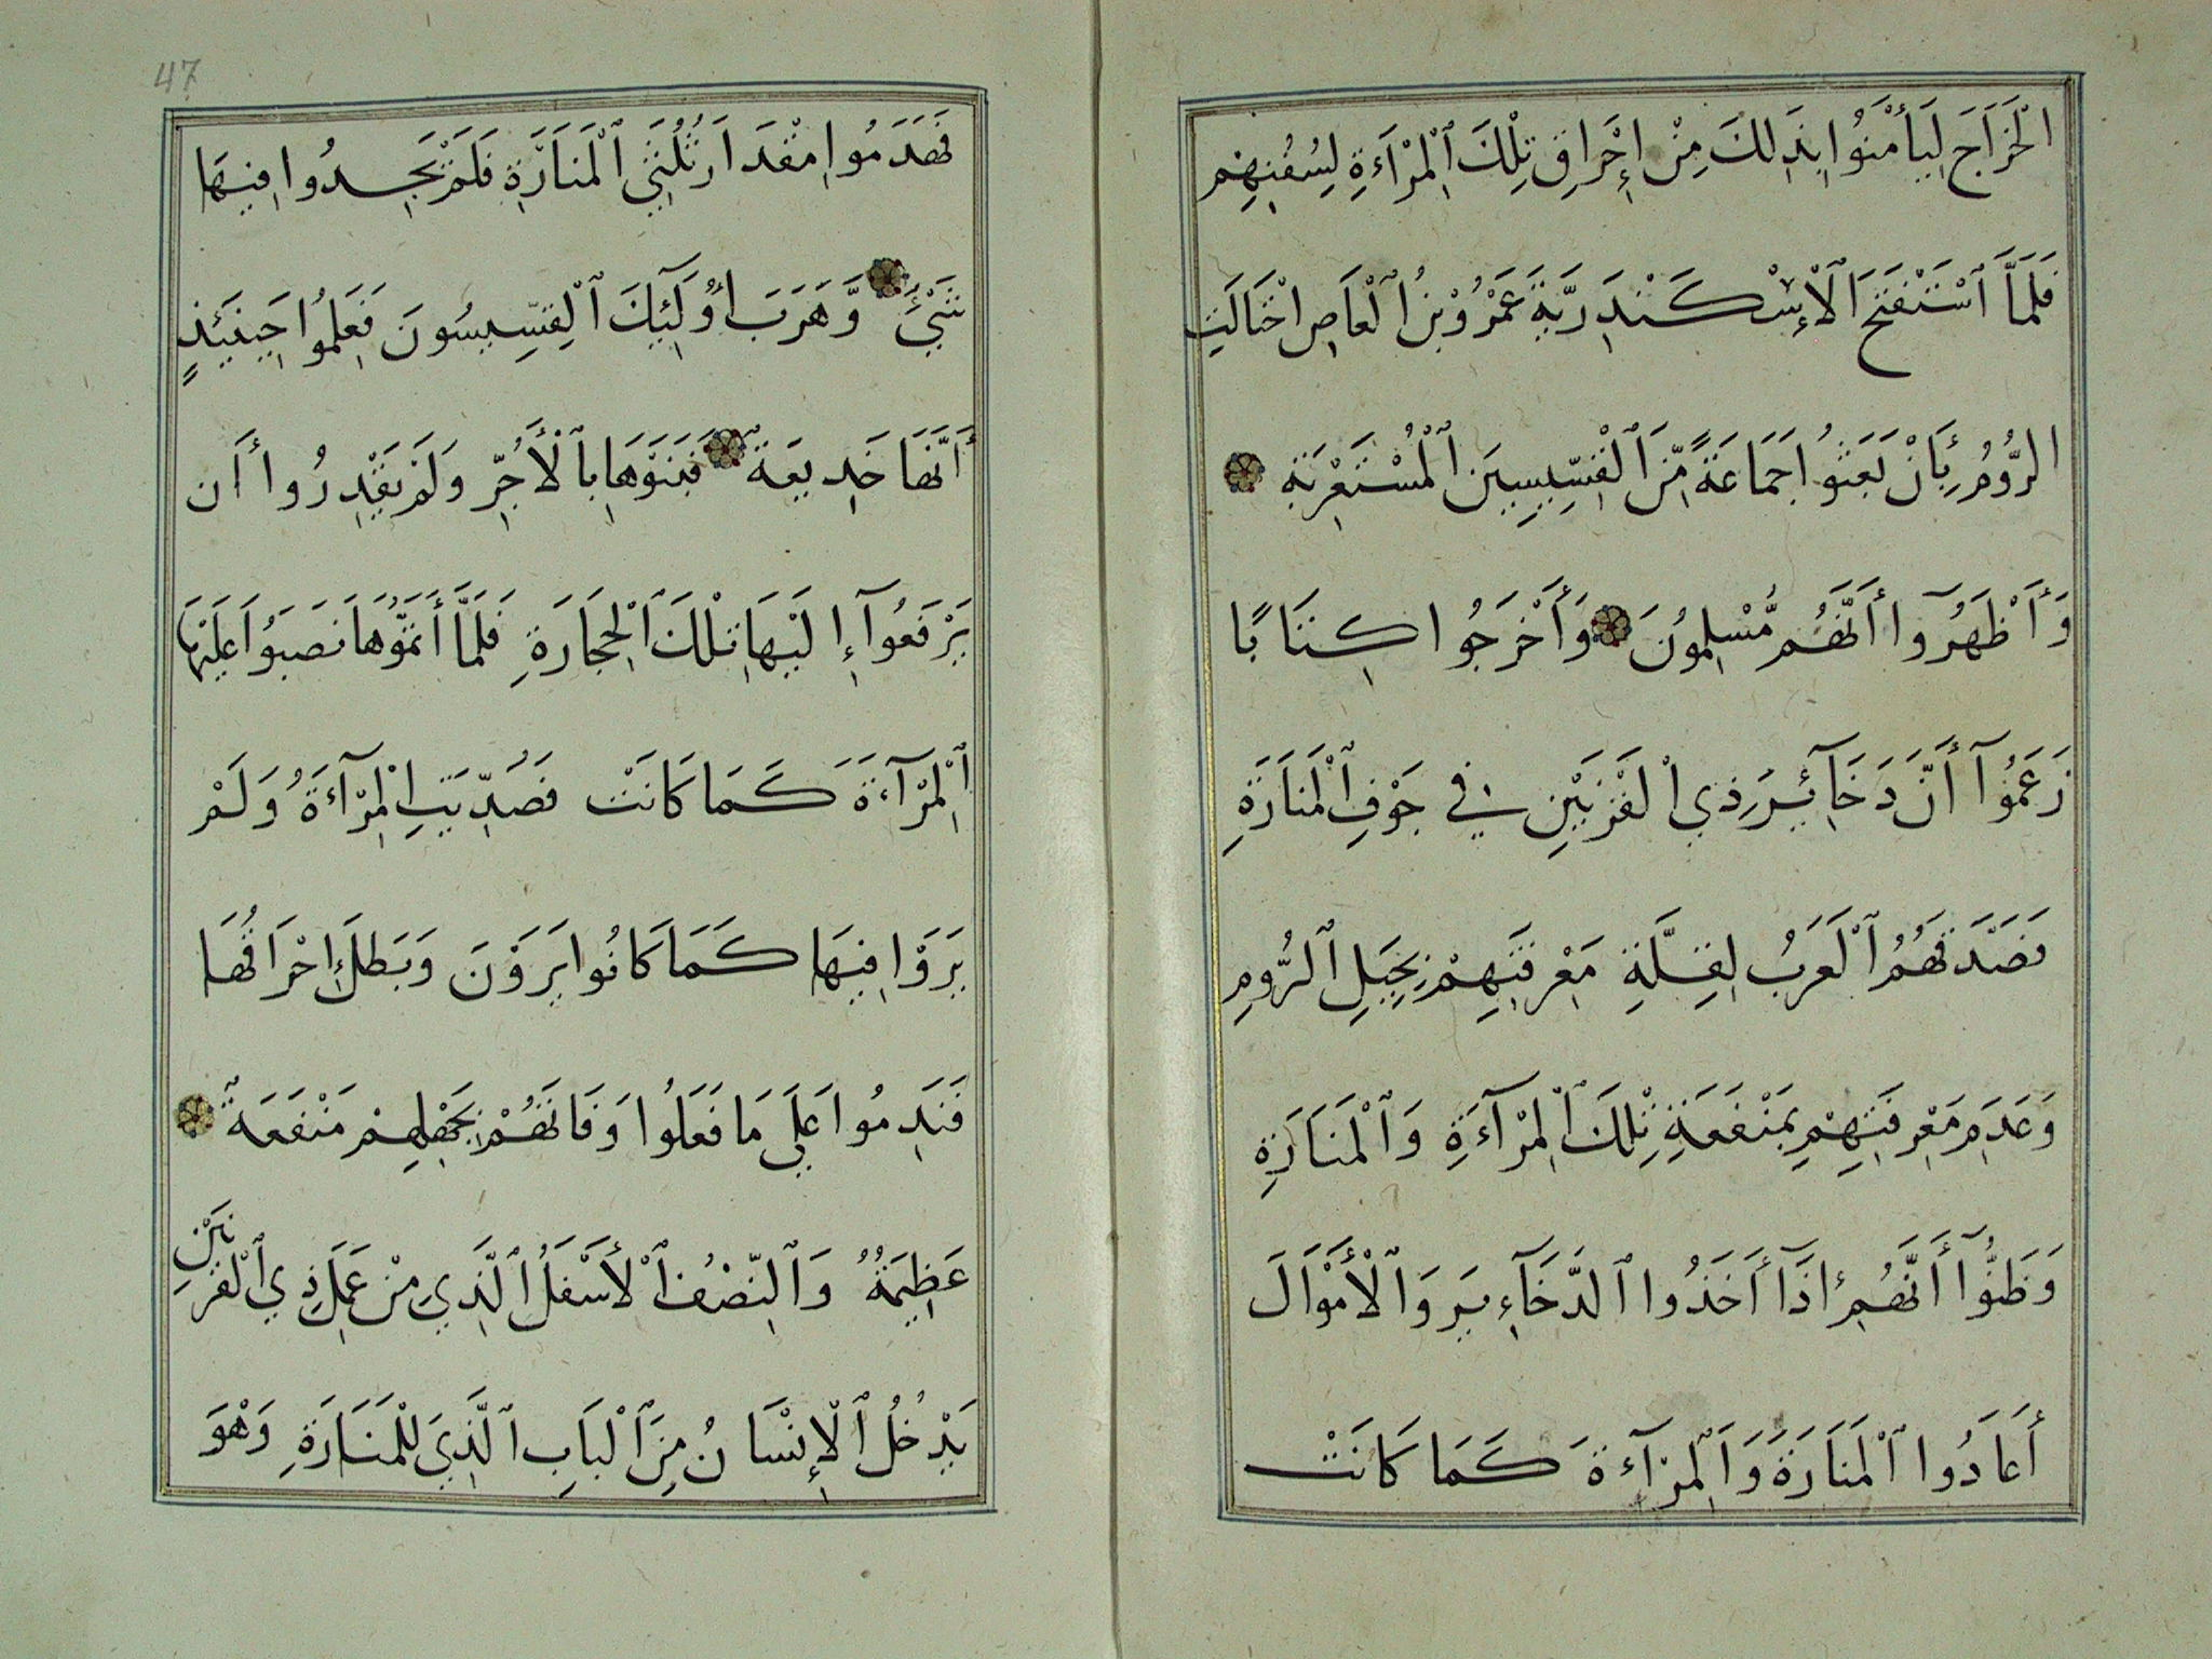 الْخَرَاجَ لِيَأْمَنُوا بِذَلِكَ مِنْ إِحْرَاقِ تِلْكَ ٱلْمِرْاَءَةِ لِسُفُنِهِم
فَلَمَّا ٱسْتَفْتَحَ ٱلْإِسْكَنْدَرِيَّةَ عَمْرُوْبْنُ ٱلْعَاصِ احْتَالَتِ
الرُّومُ بِأَنْ بَعَثُوا جَمَاعَةً مِّنَ ٱلْقِسِّيسِينَ ٱلْمُسْتَعْرِبَةِ
وَأَظْهَرُوآ أَنَّهُم مُّسْلِمُونَ وَأَخْرَجُوا كِتَابًا
زَعَمُوآ أَنَّ دَخَآئِيرَ ذِي الْقَرْنَيْنِ فِي جَوْفِ ٱلْمَنَارَةِ
فَصَدَّقَهُمُ ٱلْعَرَبُ لِقِلَّةِ مَعْرِفَتِهِمْ بِحِيَلِ ٱلرُّومِ
وَعَدَمِ مَعْرِفَتِهِمْ بِمَنْفَعَةِ تِلْكَ ٱلْمِرْآءَةِ وَٱلْمَنَارَةِ
وَظَنُّوآ أَنَّهُمْ إِذَآ أَخَذُوا ٱلدَّخَآءِيرَ وَٱلْأَمْوَالَ
أَعَادُوا ٱلْمَنَارَةَ وَٱلْمِرْآءَةَ كَمَا كَانَتْ
47
فَهَدَمُوا مِقْدَارَ ثُلُثَيِ ٱلْمَنَارَةِ فَلَمْ يَجِدُوا فِيهَا
شَيْئً وَّهَرَبَ أُولَآئِكَ ٱلْقِسِّيسُونَ فَعَلِمُوا حِينَئِذٍ
أَنَّهَا خَدِيعَةٌ فَبَنَوْهَا بِٱلْأَجُرِّ وَلَمْ يَقْدِرُوا أَن
يَرْفَعُوآ إِلَيْهَا تِلْكَ ٱلْحِجَارَةِ فَلَمَّا أَتَمُّوهَا نَصَبُوا عَلَيْهَا
ٱلْمِرْآءَةَ كَمَا كَانَتْ فَصُدِّيَتِ الْمِرْآءَةُ وَلَمْ
يَرَوْا فِيهَا كَمَا كَانُوا يَرَوْنَ وَبَطَلَ إِحْرَاقُهَا
فَنَدِمُوا عَلَى مَا فَعَلُوا وَفَاتَهُمْ بِجَهْلِهِمْ مَنْفَعَةٌ
عَظِيمَةٌ وَٱلنِّصْفُ ٱلْأَسْفَلُ ٱلَّذِي مِنْ عَمَلِ ذِي ٱلْقَرْنَيْنِ
يَدْخُلُ ٱلْإِنْسَانُ مِنَ ٱلْبَابِ ٱلَّذِيَ لِلْمَنَارَةِ وَهْوَ